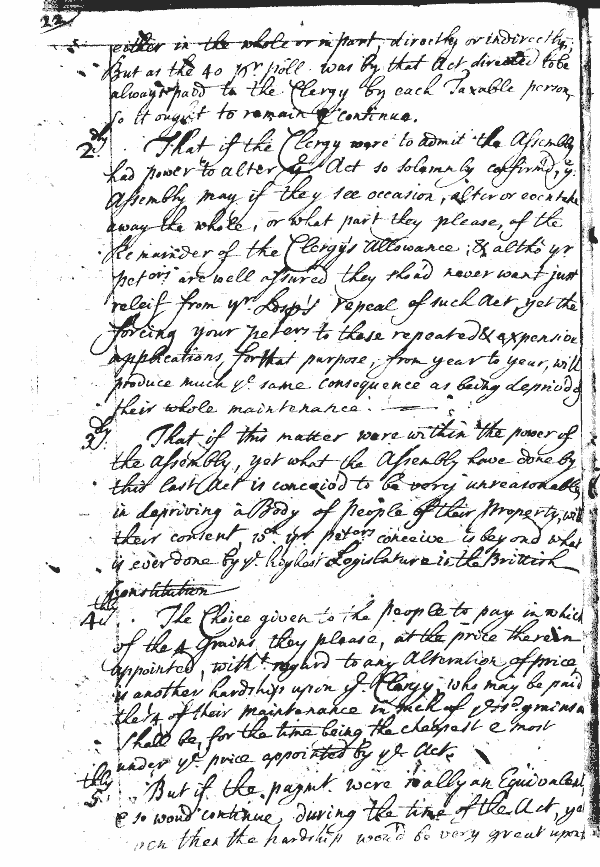 12
either in the whole or in part, directly or indirectly;
But as the 40 pr poll was by that Act directed to be
always paid to the Clergy by each Taxable person,
so it ought to remain & continue.
2dly. That if the Clergy were to admit the Assembly
had power to alter an Act so solemnly confirm'd, ye
Assembly may if they see occasion, alter or even take
away the whole, or what part they please, of the
Remainder of the Clergy's Allowance; & altho' yr
petors are well assured they shoud never want just
releif from yr Losp's repeal of such Act, yet the
forcing your peters to those repeated & expensive
applications for that purpose, from year to year, will
produce much ye same consequence as being deprivd of
their whole maintenance.
3dly. That if this matter were within the power of
the Assembly, yet what the Assembly have done by
this last Act is conceivd to be very unreasonable,
in depriving a Body of people of their Property, witht
their consent, wch yr peters conceive is beyond what
is ever done by ye highest Legislature in the Brittish
Constitution
4thly. The Choice given to the people to pay in which
of the 4 Grains they please, at the price therein
appointed, witht regard to any Alteration of price
is another hardship upon ye Clergy, who may be paid
the ¼ of their maintenance in such of ye sd grains as
shall be, for the time being the cheapest & most
under ye price appointed by ye Act.
5thly. But if the paymt. were really an Equivalent
& so woud continue, during the time of the Act, yet
even then the hardship would be very great upon